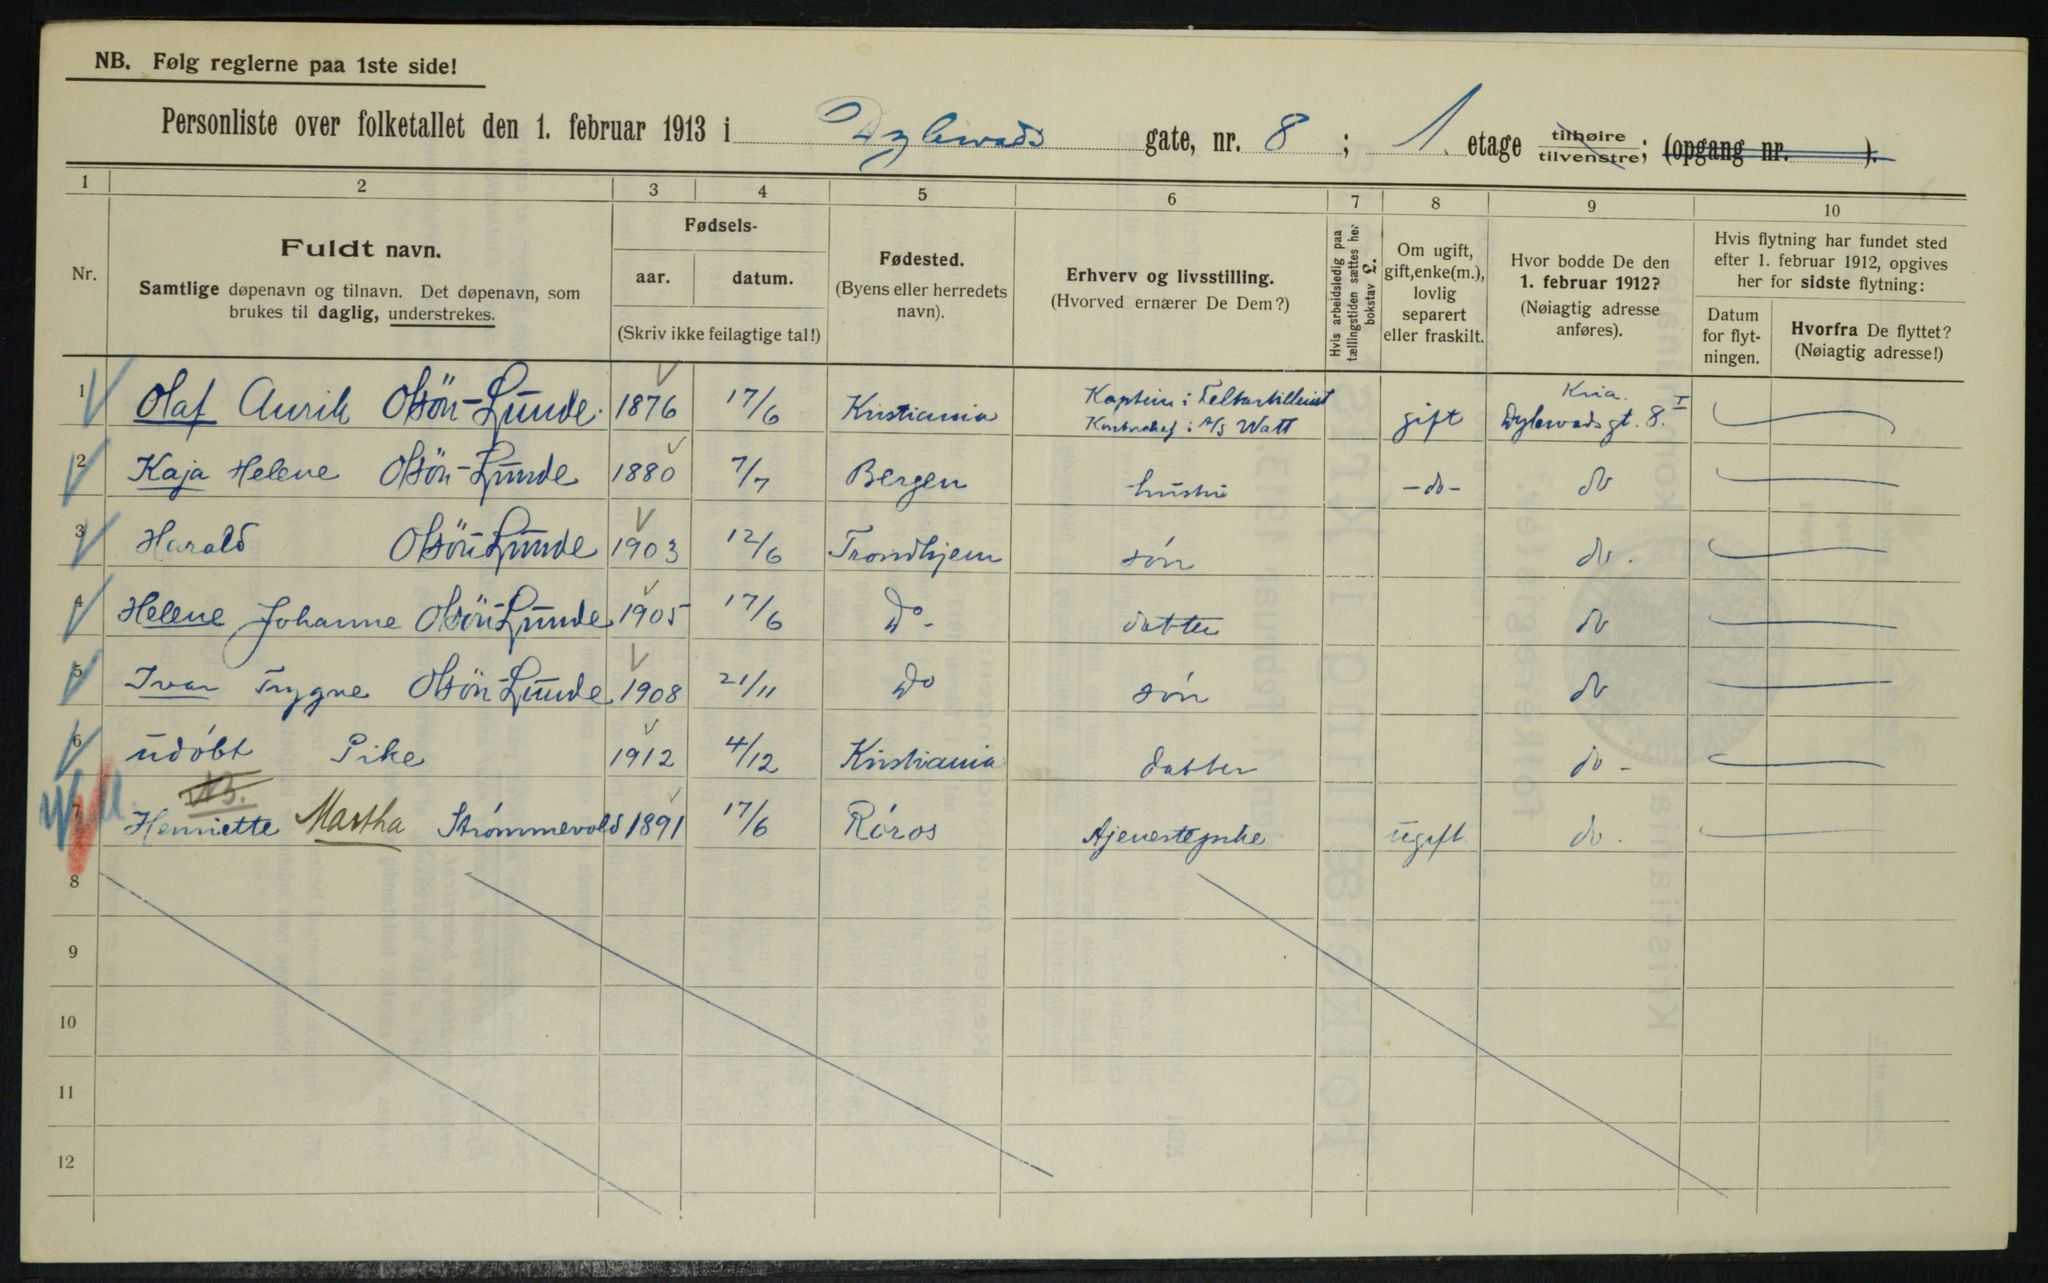 NB. Følg reglerne paa 1ste side!
Personliste over folketallet den 1. februar 1913 i Dylewads gate, nr. 8 ; 1. etage tilhøire tilvenstre; (opgang nr. ).
1 2 3 4 5 6 7 8 9 10
Nr.
Fuldt navn.
Samtlige døpenavn og tilnavn. Det døpenavn, som
brukes til daglig, understrekes.
Fødsels-
aar. datum.
(Skriv ikke feilagtige tal!)
Fødested.
(Byens eller herredets
navn).
Erhverv og livsstilling.
(Hvorved ernærer De Dem?)
Hvis arbeidsledig paa
tællingstiden sættes her
bokstav £.
Om ugift,
gift, enke(m.),
lovlig
separert
eller fraskilt.
Hvor bodde De den
1. februar 1912?
(Nøiagtig adresse
anføres).
Hvis flytning har fundet sted
efter 1. februar 1912, opgives
her for sidste flytning:
Datum
for flyt-
ningen.
Hvorfra De flyttet?
(Nøiagtig adresse!)
1 Olaf Olsön-Lunde. 1876 17/6 Kristiania Kaptein i Feltartilleriet gift Kria.
i A/S Watt Dylewadsgt. 8. I
2 Kaja Helene Olsön-Lunde 1880 7/7 Bergen hustru -do- do
3 Harald Olsön-Lunde 1903 12/6 Trondhjem søn do.
4 Helene Johanne Olsön-Lunde 1905 17/6 Do. datter do
5 Ivar Trygve Olsön-Lunde 1908 21/11 Do søn do
6 udøbt Pike 1912 4/12 Kristiania datter do-
NB.
7 Henriette Martha Strømmevold 1891 17/6 Røros tjenestepike ugift do.
8
9
10
11
12